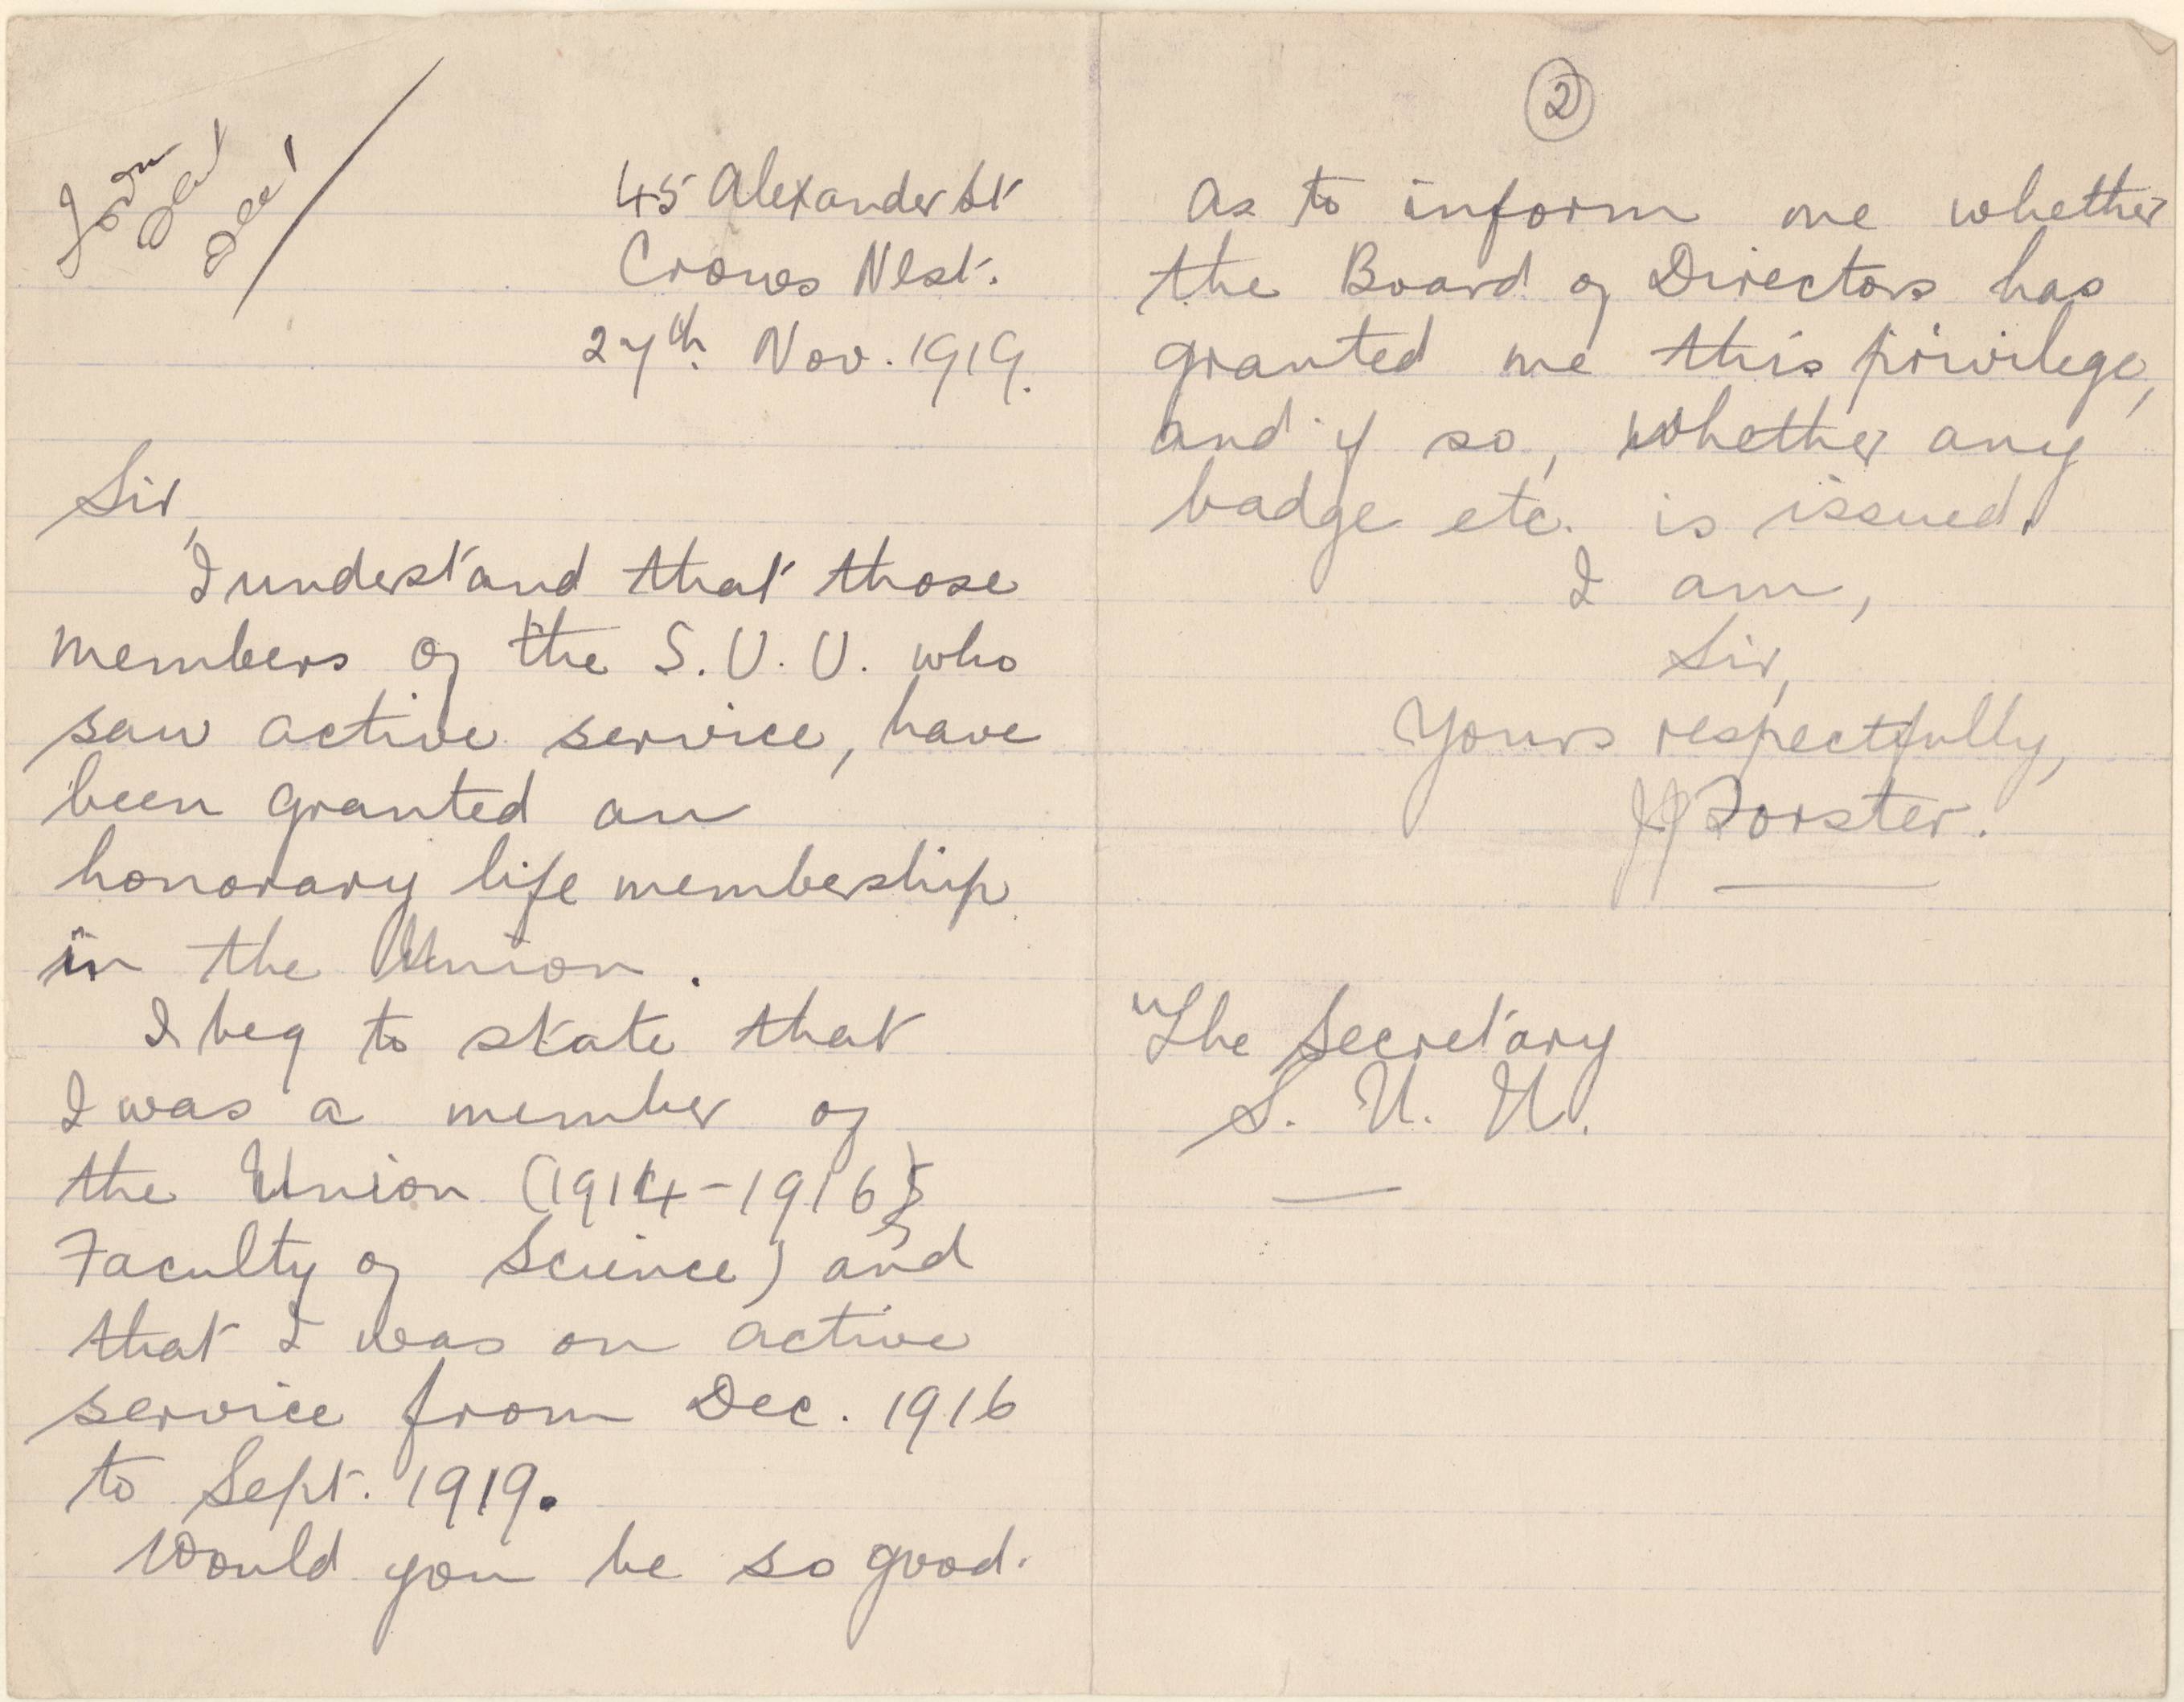 45 Alexander St
Crows Nest.
27th. Nov. 1919.
Sir,
I understand that those
members of the S.U.U. who
saw active service, have
been granted an
honorary life membership
in the Union.
I beg to state that
I was a member of
the Union (1914-1916;
Faculty of Science) and
that I was on active
service from Dec. 1916
to Sept. 1919.
Would you be so good.
2
as to inform me whether
the Board of Directors has
granted me this privilege,
and if so, whether any
badge etc. is issued.
I am,
Sir,
Yours respectfully,
Forster.
"The Secretary
S. U. U.